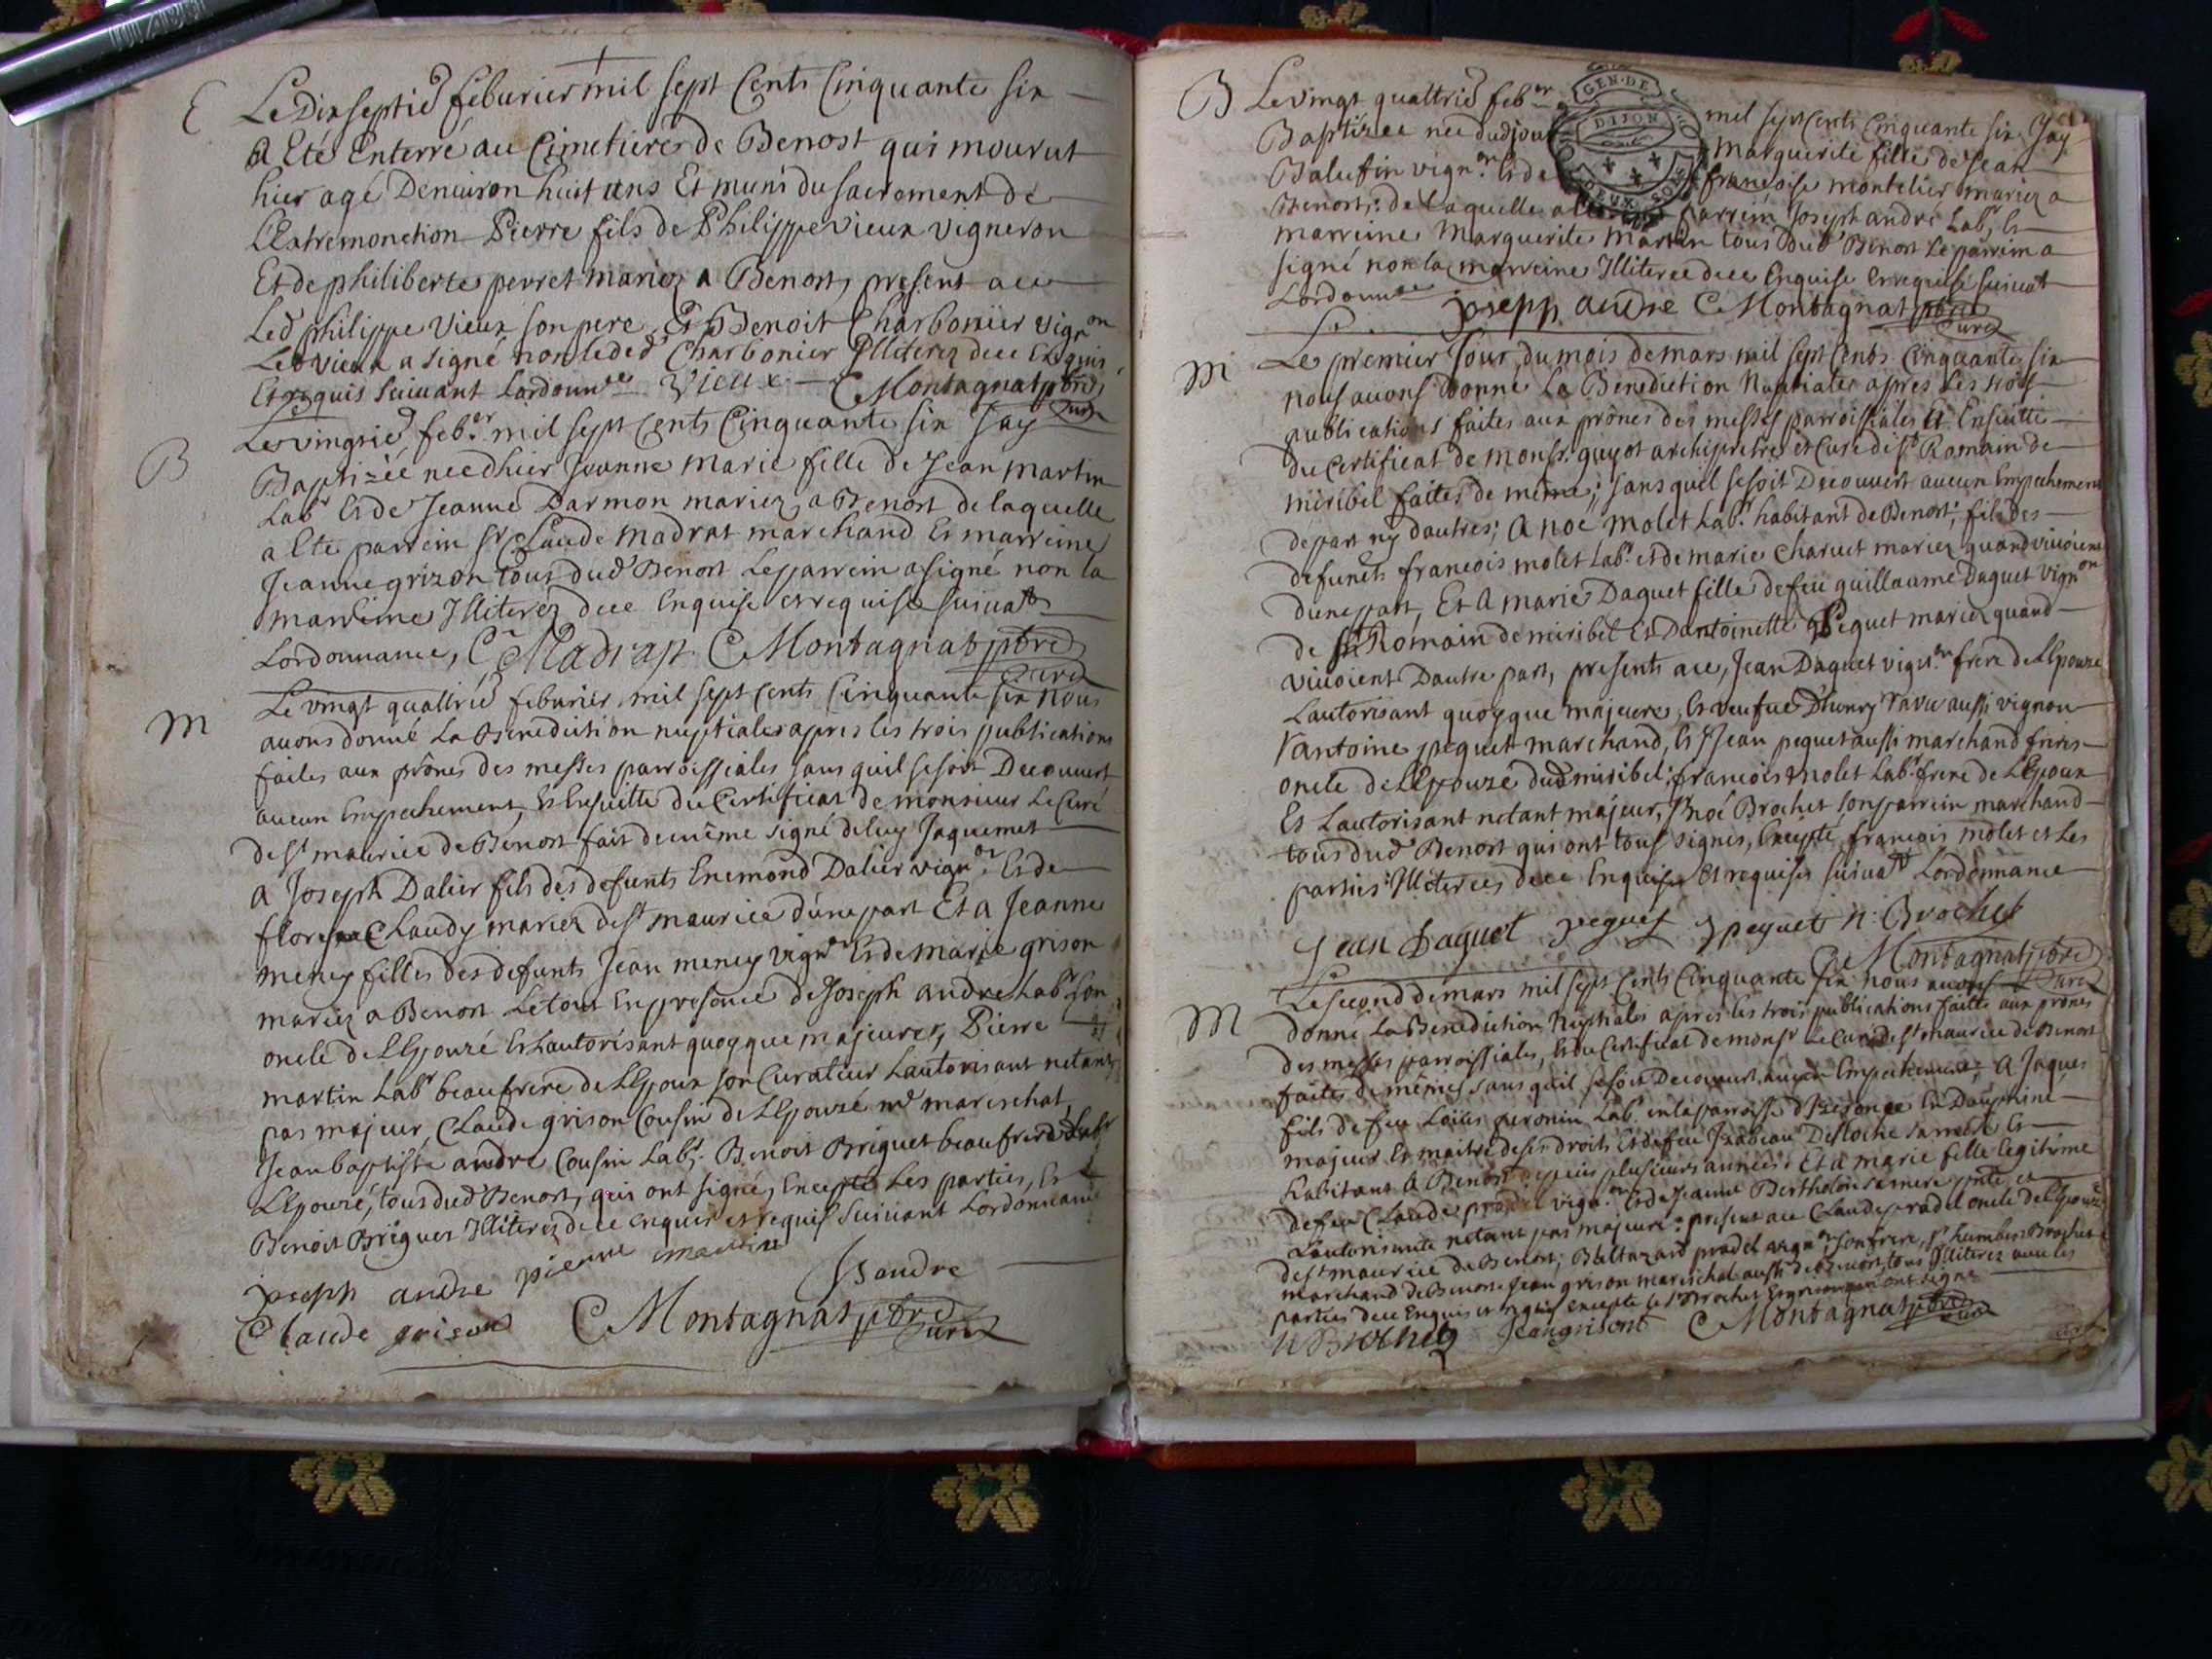 E
Le Dixseptie feburier mil sept Cents Cinquante six
A Eté Enterré au Cimetiere de Benost qui mourut
hier agé Denuiron huit ans Et muni du sacrement de
LExtremonction Pierre fils de Philippe vieux vigneron
Et de philiberte perret mariez a Benost, present ace
Led philippe vieux son pere, Et Benoit Charbonier vign.on
Led vieux a signé non leded Charbonier Illiterez dece Enquis
Et requis suiuant Lordonn.ce vieux C Montagnat pbre
Curé
B
Le vingtie feb.er mil sept Cents Cinquante six Jay
Baptizée née dhier Jeanne Marie fille de Jean Martin
Lab.r Et de Jeanne Darmon mariez a Benost de laquelle
a Eté parrein sr Claude Madrat marchand Et marreine
Jeanne grizon tous dud Benost Le parrein a signé non la
marreine Illiterez dece Enquise et requise suiuat
Lordonnance, C Madrat C Montagnat pbre
Curé
M
Le vingt quattrie feburier mil sept Cents Cinquante six nous
auons donné La Benediction nuptiale apres les trois publications
faites aux prônes des messes parroissiales sans quil se soit Decouuert
aucun Empechement, Et Ensuitte du Certificat de monsieur Le Curé
de st maurice de Benost fait de même signé de luy Jaquemet
a Joseph Dalier fils des defunts Enemond Dalier vign.on Et de
Claudy mariez de st maurice dune part Et a Jeanne
meney filles des defunts Jean meney vign.on Et de marie grison
mariez a Benost Le tout En presence de Joseph andre Lab.r son
oncle de LEpouze Et Lautorisant quoyque majeure, Pierre
martin Lab.r beaufrere de LEpoux son Curateur Lautorisant netant
pas majeur, Claude grison Cousin de LEpouze md mareschat,
Jean baptiste andre Cousin Lab.r Benoit Briguet beaufrere
LEpouze, tous dud Benost, qui ont signé, Excepte Les parties, Et
Benoit Briguet Illiterez de ce enquis et requis suiuant Lordonnance
joseph andre pierre martin JBandre
Claude grison C Montagnat pbre
Curé
B
Le vingt quattrie feb.er mil sept Cents Cinquante six Jay
Baptizee nee dud jour Marguerite fille de Jean
Balufin vign.on Et de francoise montelier mariez a
Benost; de Laquelle a parrein Joseph andré Lab.r Et
marreine Marguerite Martin tous dud Benost Le parrein a
signé non la marreine Illiteree dece Enquise et requise suiuat
Lordonnce joseph andre C Montagnat pbre
Curé
GEN. DE
DIJON
DEUX SOLS
M
Le premier Jour du mois de mars mil sept Cents Cinquante six
nous auons donné La Benediction Nuptiale apres Les trois
publications faites aux prônes des messes parroissiales Et Ensuitte
du Certificat de monsr. guyot archiprêtre et Curé de st Romain de
miribel faites de même; sans quil se soit Decouuert aucun Empechement
de part ny dautres; A noé molet Lab.r habitant de Benost; fils des
defunts francois molet Lab.r et de marie Charuet mariez quand viuoient
dune part, Et A marie Daguet fille de feu guillaume Daguet vign.on
de st Romain de miribel Et Dantoinette Peguet mariez quand
viuoient Dautre part, presents ace, Jean Daguet vign.on frere de LEpouze
Lautorisant quoyque majeure, Et veufue Dhenry rave aussi vigneron
antoine peguet marchand, Et Jean peguet aussi marchand freres
oncle de LEpouze dud miribel; francois molet Lab.r frere de LEpoux
Et Lautorisant netant majeur, Noé Brochet son parrein marchand
tous dud Benost qui ont tous signes, Excepté francois molet et Les
parties Illiterees dece Enquises Et requises suiuat Lordonnance
Jean Daguet peguet J peguet N. Brochet
C Montagnat pbre
Curé
M
Le second de mars mil sept Cents Cinquante six nous auons
donné La Benediction Nuptiale apres les trois publications faites aux prônes
des messes parroissiales, Et du Certificat de monsr Le Curé de st maurice de Benost
faites de mêmes sans quil se soit Decouuert aucun Empechement; A Jaques
fils de feu Louis peronin Lab.r en la parroisse En Dauphiné
majeur Et maitre de ses droits Et de feu Izabeau Delloche sa mere Et
habitant A Benost depuis plusieurs années: Et a marie fille legitime
de feu Claude pradel vign.on Et de Jeanne Bertholon sa mere pnte et
Lautorisante netant pas majeure: present ace Claude pradel oncle de LEpouze
de st maurice de Benost; Baltazard pradel vign.on son frere, sr humbert Brochet
marchand de Benost Jean grison mareschal aussi de Benost, tous Illiterez auec les
parties dece Enquis et requis excepte le sr Brochet Et grison qui ont signé
H Brochet Jean grison C Montagnat pbre
Curé